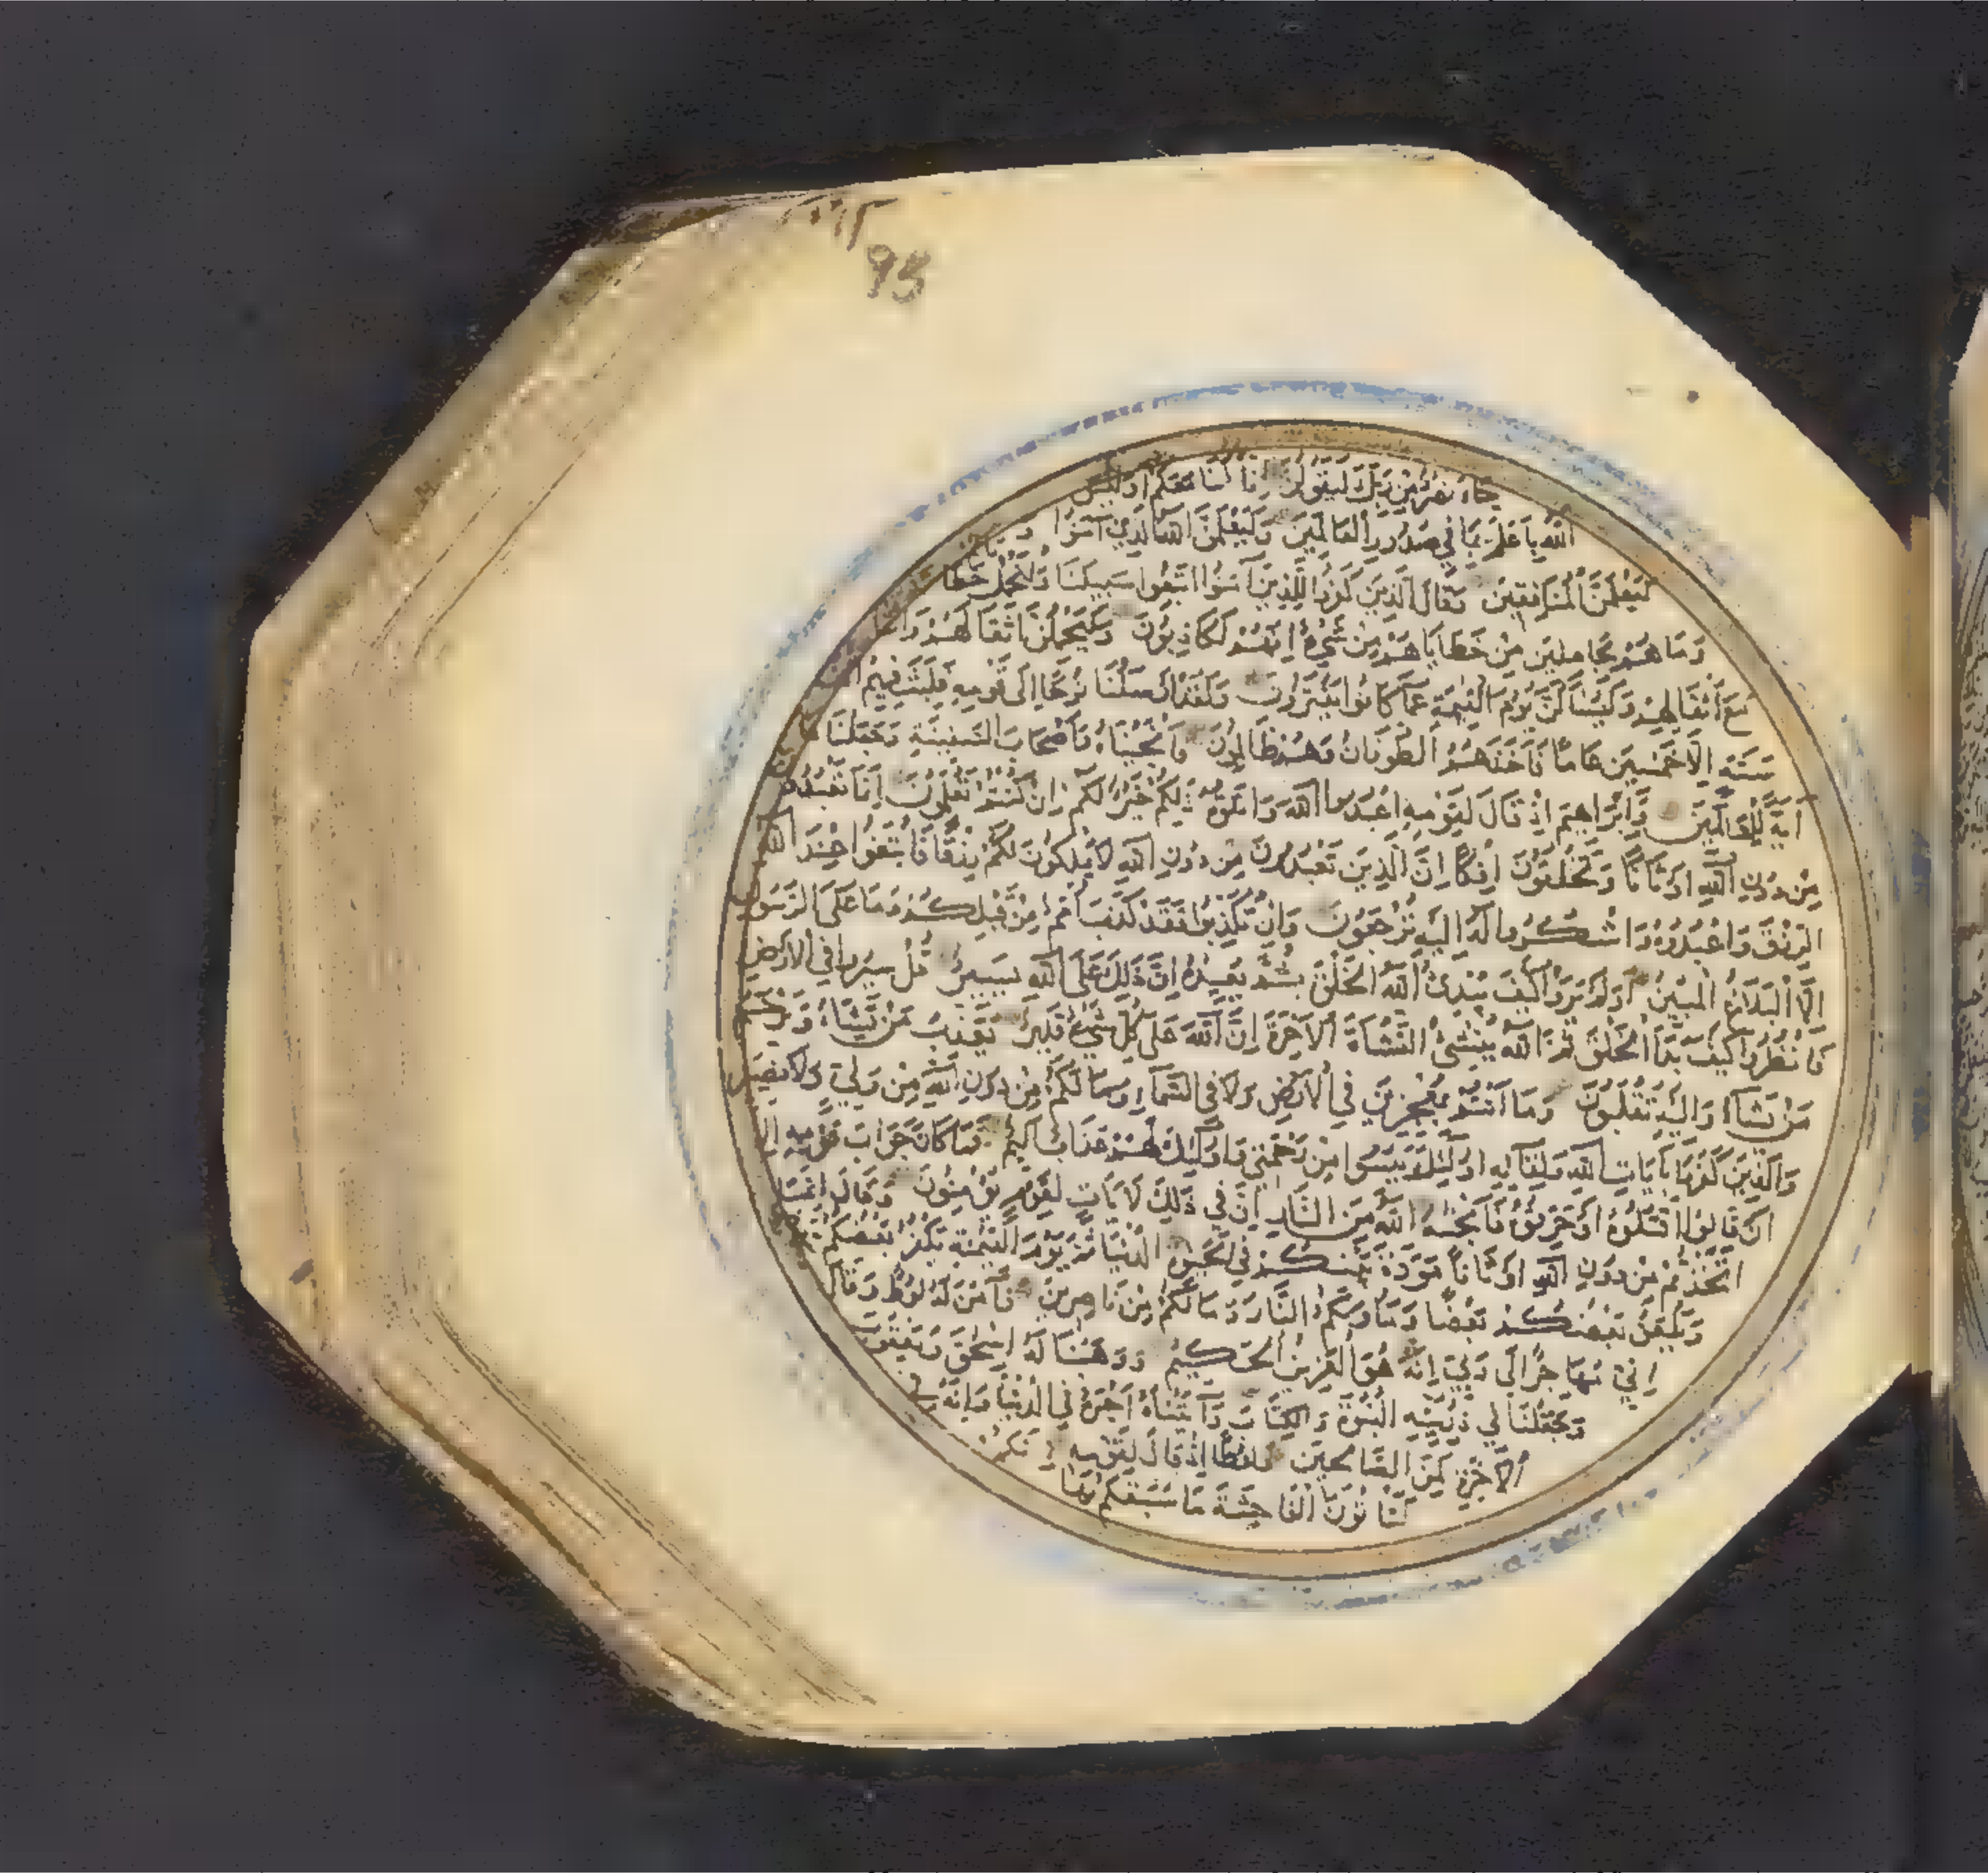 95
جَاءَ نَصْرٌ مِنْ رَبِّكَ لَيَقُولُنَّ إِنَّا كُنَّا مَعَكُمْ أَوَلَيْسَ
اللَّهُ بِأَعْلَمَ بِمَا فِي صُدُورِ الْعَالَمِينَ وَلَيَعْلَمَنَّ اللَّهُ الَّذِينَ آمَنُوا وَ
لَيَعْلَمَنَّ الْمُنَافِقِينَ وَقَالَ الَّذِينَ كَفَرُوا لِلَّذِينَ آمَنُوا اتَّبِعُوا سَبِيلَنَا وَلْنَحْمِلْ
وَمَا هُمْ بِحَامِلِينَ مِنْ خَطَايَاهُمْ مِنْ شَيْءٍ إِنَّهُمْ لَكَاذِبُونَ وَلَيَحْمِلُنَّ أَثْقَالَهُمْ وَأَثْقَالًا
مَعَ أَثْقَالِهِمْ وَلَيُسْأَلُنَّ يَوْمَ الْقِيمَةِ عَمَّا كَانُوا يَفْتَرُونَ وَلَقَدْ أَرْسَلْنَا نُوحًا إِلَى قَوْمِهِ فَلَبِثَ فِيهِمْ
سَنَةٍ إِلَّا خَمْسِينَ عَامًا فَأَخَذَهُمُ الطُّوفَانُ وَهُمْ ظَالِمُونَ فَأَنْجَيْنَاهُ وَأَصْحَابَ السَّفِينَةِ وَجَعَلْنَاهَا
آيَةً لِلْعَالَمِينَ وَإِبْرَاهِيمَ إِذْ قَالَ لِقَوْمِهِ اعْبُدُوا اللَّهَ وَاتَّقُوهُ ذَلِكُمْ خَيْرٌ لَكُمْ إِنْ كُنْتُمْ تَعْلَمُونَ إِنَّمَا تَعْبُدُونَ
مِنْ دُونِ اللَّهِ أَوْثَانًا وَتَخْلُقُونَ إِفْكًا إِنَّ الَّذِينَ تَعْبُدُونَ مِنْ دُونِ اللَّهِ لَا يَمْلِكُونَ لَكُمْ رِزْقًا فَابْتَغُوا عِنْدَ اللَّهِ
الرِّزْقَ وَاعْبُدُوهُ وَاشْكُرُوا لَهُ إِلَيْهِ تُرْجَعُونَ وَإِنْ تُكَذِّبُوا فَقَدْ كَذَّبَ أُمَمٌ مِنْ قَبْلِكُمْ وَمَا عَلَى الرَّسُولِ
إِلَّا الْبَلَاغُ الْمُبِينُ أَوَلَمْ يَرَوْا كَيْفَ يُبْدِئُ اللَّهُ الْخَلْقَ ثُمَّ يُعِيدُهُ إِنَّ ذَلِكَ عَلَى اللَّهِ يَسِيرٌ قُلْ سِيرُوا فِي الْأَرْضِ
فَانْظُرُوا كَيْفَ بَدَأَ الْخَلْقَ ثُمَّ اللَّهُ يُنْشِئُ النَّشْأَةَ الْآخِرَةَ إِنَّ اللَّهَ عَلَى كُلِّ شَيْءٍ قَدِيرٌ يُعَذِّبُ مَنْ يَشَاءُ وَيَرْحَمُ
مَنْ يَشَاءُ وَإِلَيْهِ تُقْلَبُونَ وَمَا أَنْتُمْ بِمُعْجِزِينَ فِي الْأَرْضِ وَلَا فِي السَّمَاءِ وَمَا لَكُمْ مِنْ دُونِ اللَّهِ مِنْ وَلِيٍّ وَلَا نَصِيرٍ
وَالَّذِينَ كَفَرُوا بِآيَاتِ اللَّهِ وَلِقَائِهِ أُولَئِكَ يَئِسُوا مِنْ رَحْمَتِي وَأُولَئِكَ لَهُمْ عَذَابٌ أَلِيمٌ فَمَا كَانَ جَوَابَ قَوْمِهِ إِلَّا
أَنْ قَالُوا اقْتُلُوهُ أَوْ حَرِّقُوهُ فَأَنْجَاهُ اللَّهُ مِنَ النَّارِ إِنَّ فِي ذَلِكَ لَآيَاتٍ لِقَوْمٍ يُؤْمِنُونَ وَقَالَ إِنَّمَا
اتَّخَذْتُمْ مِنْ دُونِ اللَّهِ أَوْثَانًا مَوَدَّةَ بَيْنِكُمْ فِي الْحَيٰوةِ الدُّنْيَا ثُمَّ يَوْمَ الْقِيمَةِ يَكْفُرُ بَعْضُكُمْ بِبَعْضٍ
وَيَلْعَنُ بَعْضُكُمْ بَعْضًا وَمَأْوَاكُمُ النَّارُ وَمَا لَكُمْ مِنْ نَاصِرِينَ فَآمَنَ لَهُ لُوطٌ وَقَالَ
إِنِّي مُهَاجِرٌ إِلَى رَبِّي إِنَّهُ هُوَ الْعَزِيزُ الْحَكِيمُ وَوَهَبْنَا لَهُ إِسْحٰقَ وَيَعْقُوبَ
وَجَعَلْنَا فِي ذُرِّيَّتِهِ النُّبُوَّةَ وَالْكِتَابَ وَآتَيْنَاهُ أَجْرَهُ فِي الدُّنْيَا وَإِنَّهُ فِي
الْآخِرَةِ لَمِنَ الصَّالِحِينَ وَلُوطًا إِذْ قَالَ لِقَوْمِهِ إِنَّكُمْ
لَتَأْتُونَ الْفَاحِشَةَ مَا سَبَقَكُمْ بِهَا